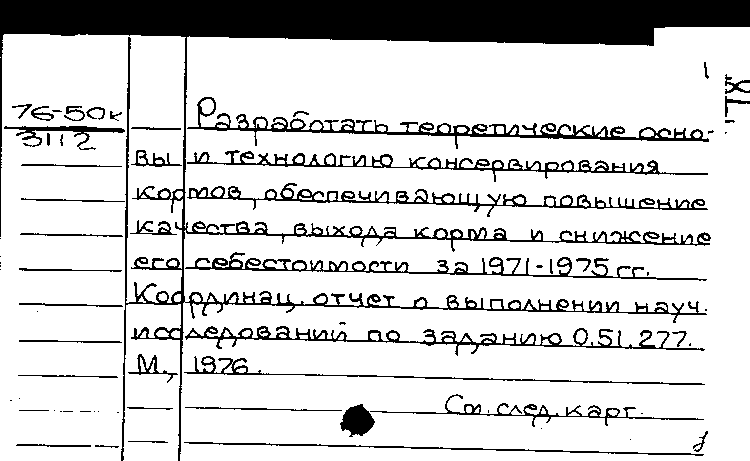 1
76-50к
3112
Разработать теоретические осно-
вы и технологию консервирования
кормов, обеспечивающую повышение
качества, выхода корма и снижение
его себестоимости за 1971-1975 гг.
Координац. отчет о выполнении науч.
исследований по заданию 0.51.277.
М., 1976.
См. след. карт.